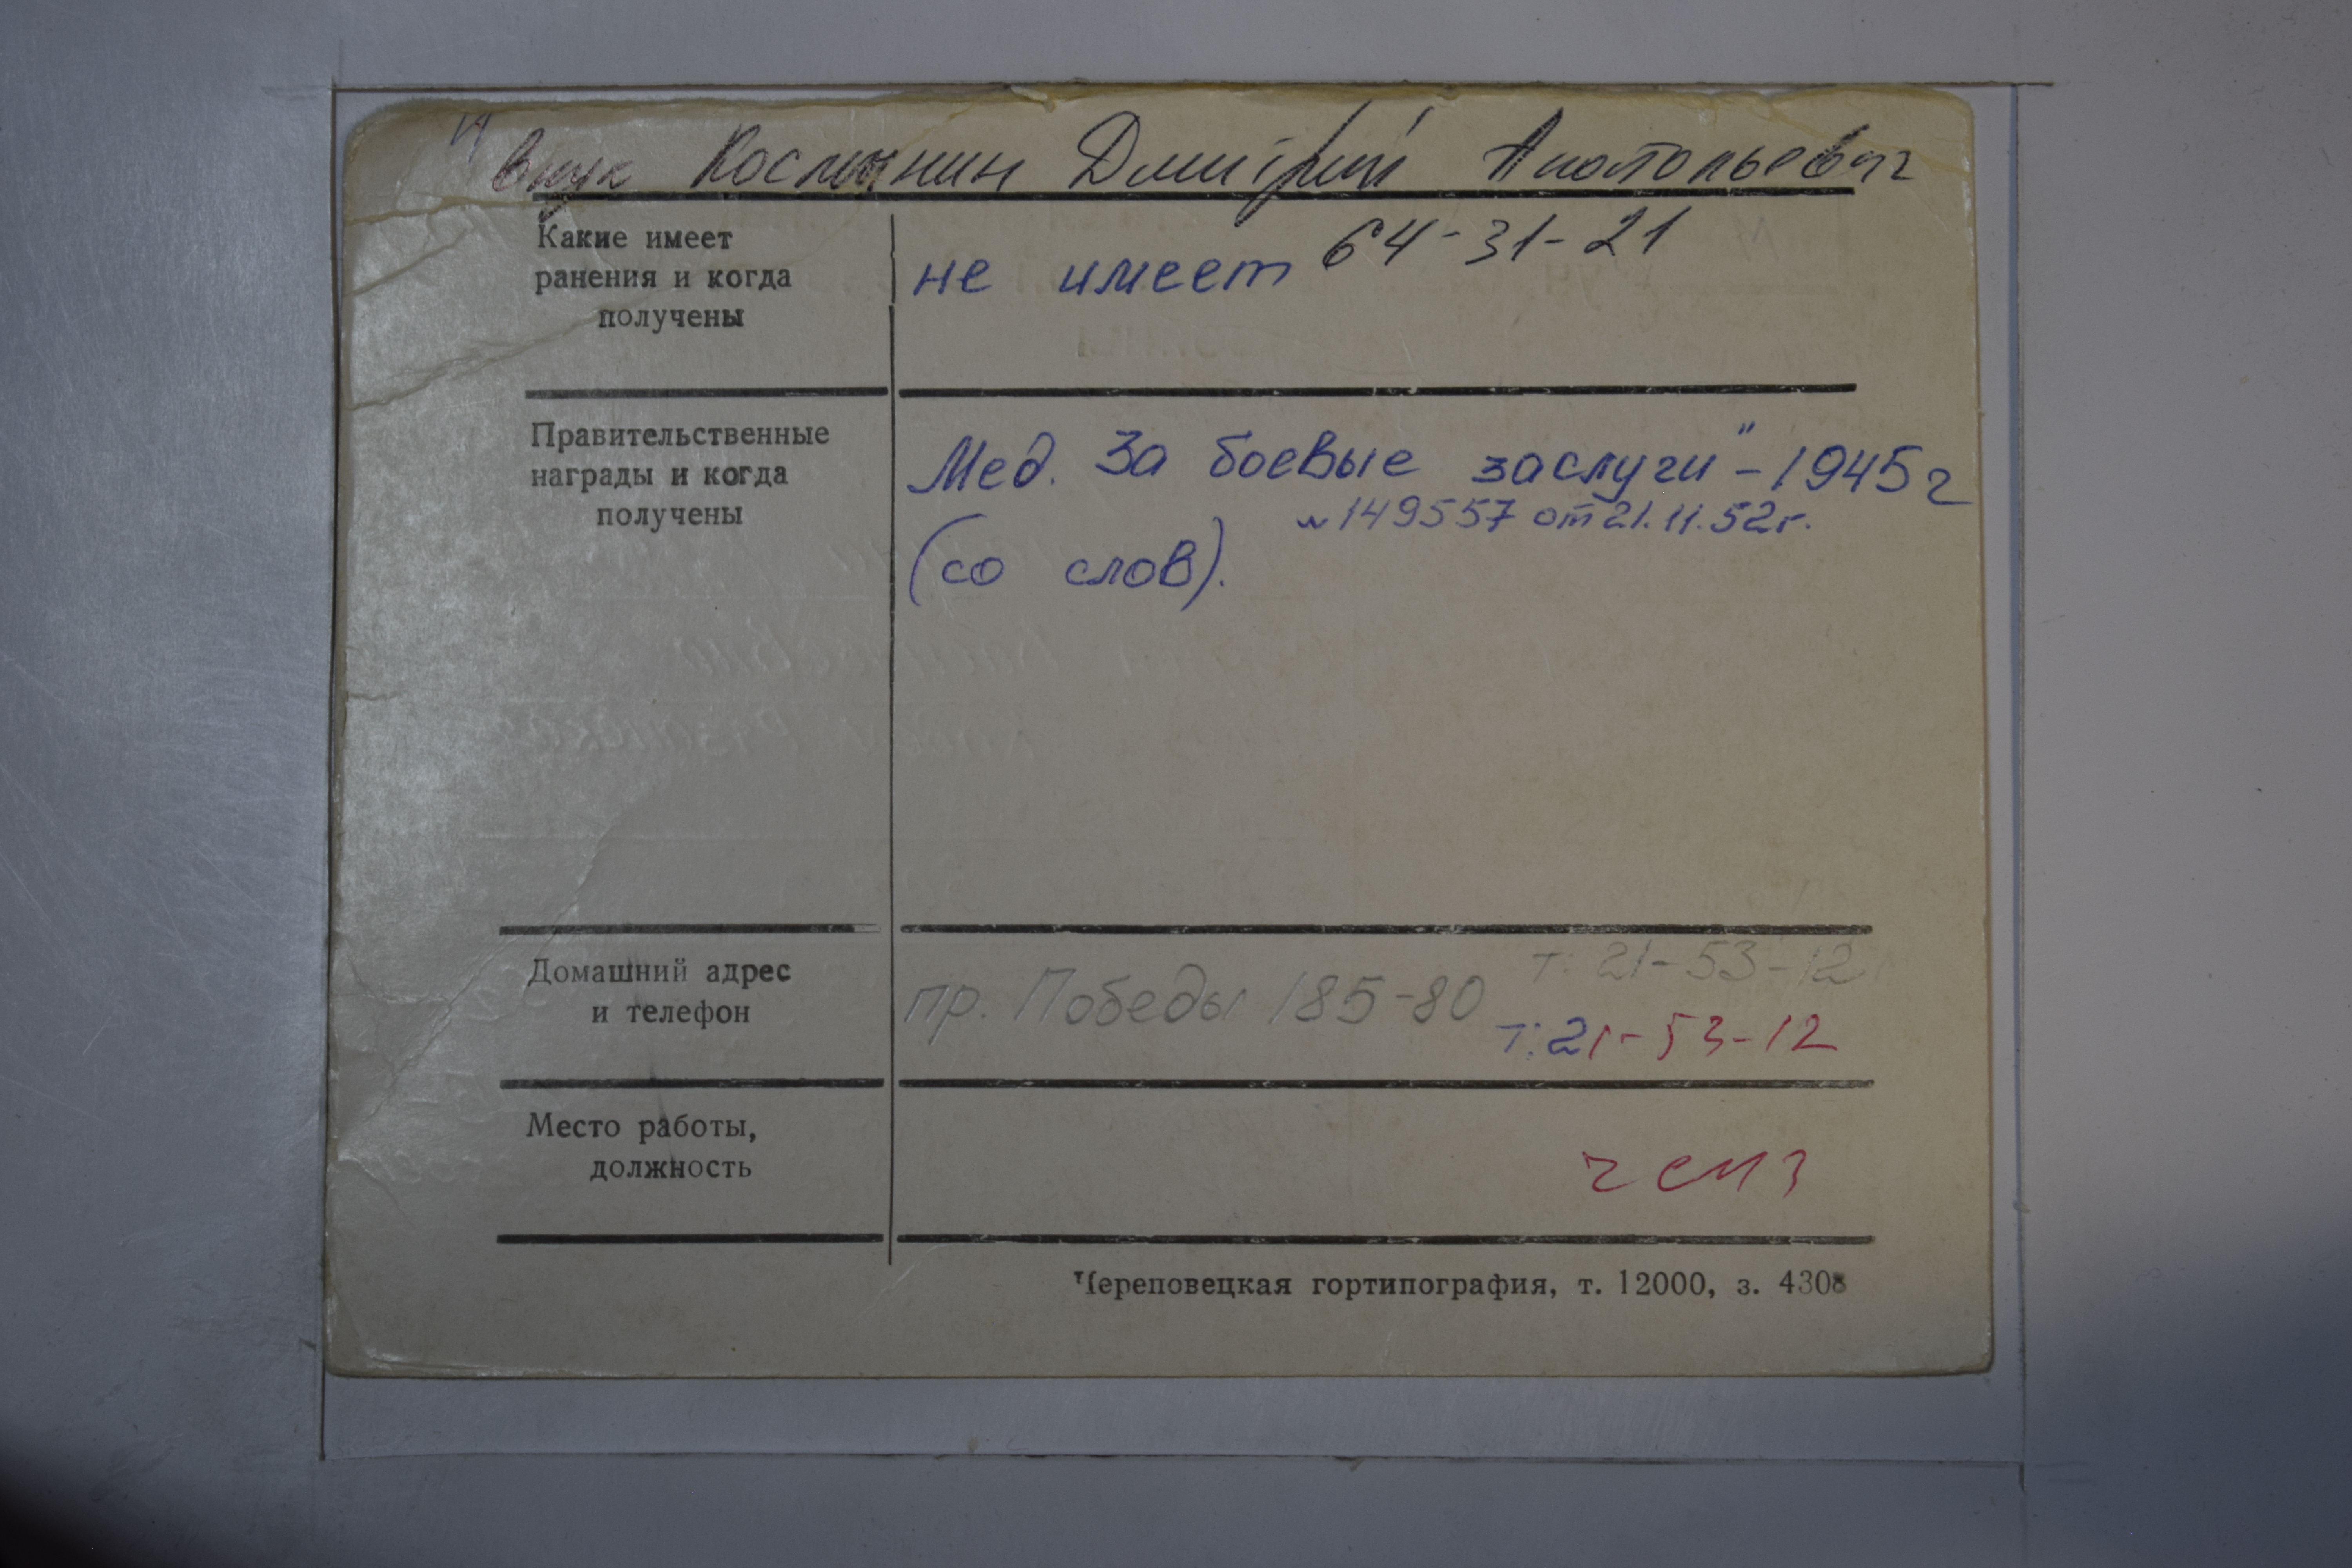 внук Космынин Дмитрий Анатольевич
64-31-21
Какие имеет
ранения и когда
получены
не имеет
Правительственные
награды и когда
получены
Мед. За боевые заслуги" - 1945 г
№ 149557 от 21.11.52г.
(со слов).
Домашний адрес
и телефон
пр. Победы 185-80
т: 21-53-12
т: 21-53-12
Место работы,
должность
Череповецкая гортипография, т. 12000, з. 4308